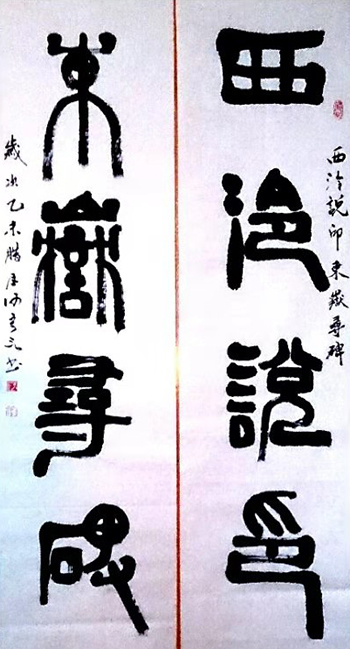 西泠說印
西泠說印東嶽尋碑
東嶽尋碑
歲次乙未腊月